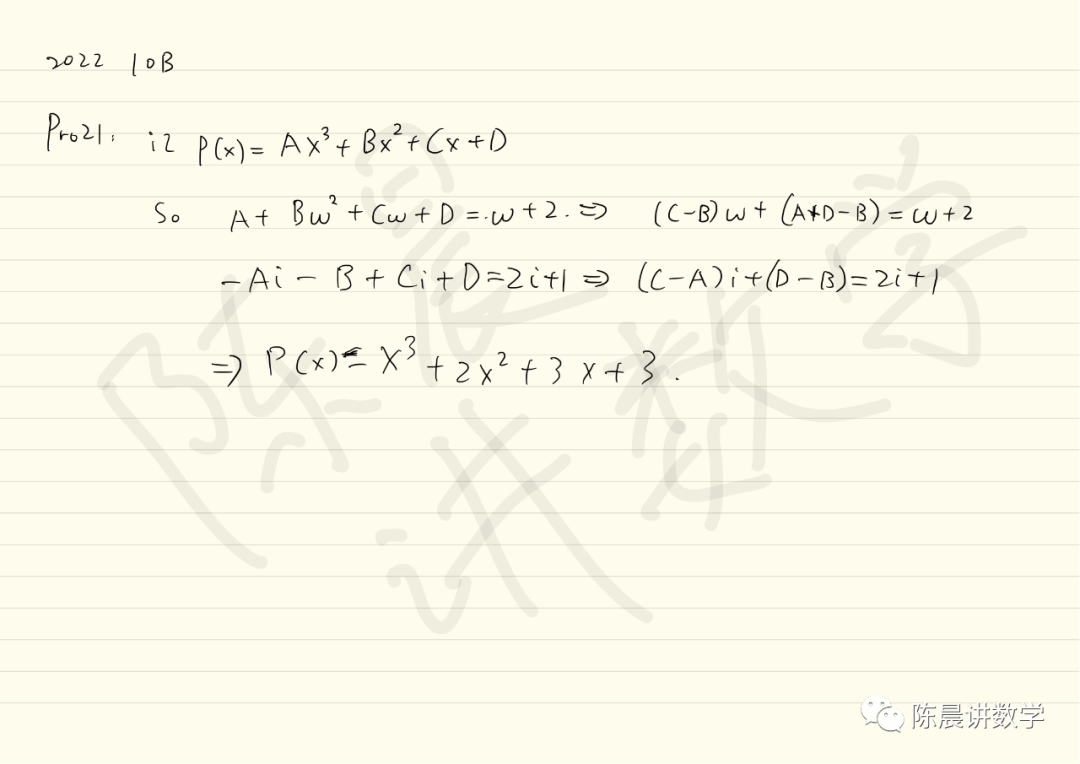 2022 10B
Pro21. 记 P(x)= Ax³+Bx²+Cx+D
So A+Bω²+Cω+D=ω+2. ⇒ (C-B)ω+(A+D-B)=ω+2
-Ai-B+Ci+D=2i+1 ⇒ (C-A)i+(D-B)=2i+1
⇒ P(x)=x³+2x²+3x+3.
陈晨讲数学
陈晨讲数学